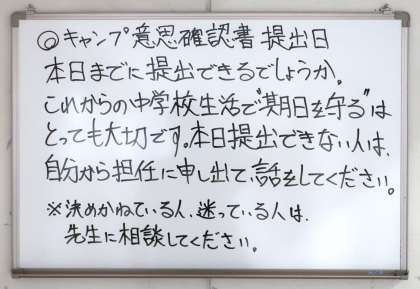 ◎キャンプ意思確認書提出日
本日までに提出できるでしょうか。
これからの中学校生活で"期日を守る"は
とっても大切です。本日提出できない人は、
自分から担任に申し出て、話をしてください。
※決めかねている人、迷っている人は、
先生に相談してください。